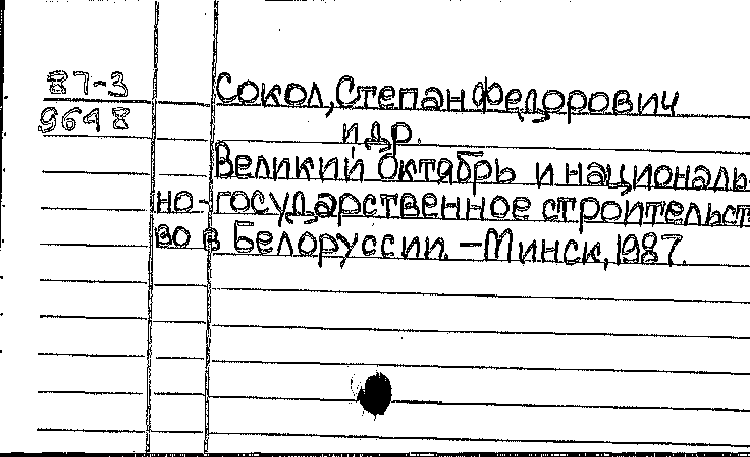 87-3
9648
Сокол, Степан Федорович
и др.
Великий Октябрь и националь
но-государственное строительст
во в Белоруссии. – Минск, 1987.